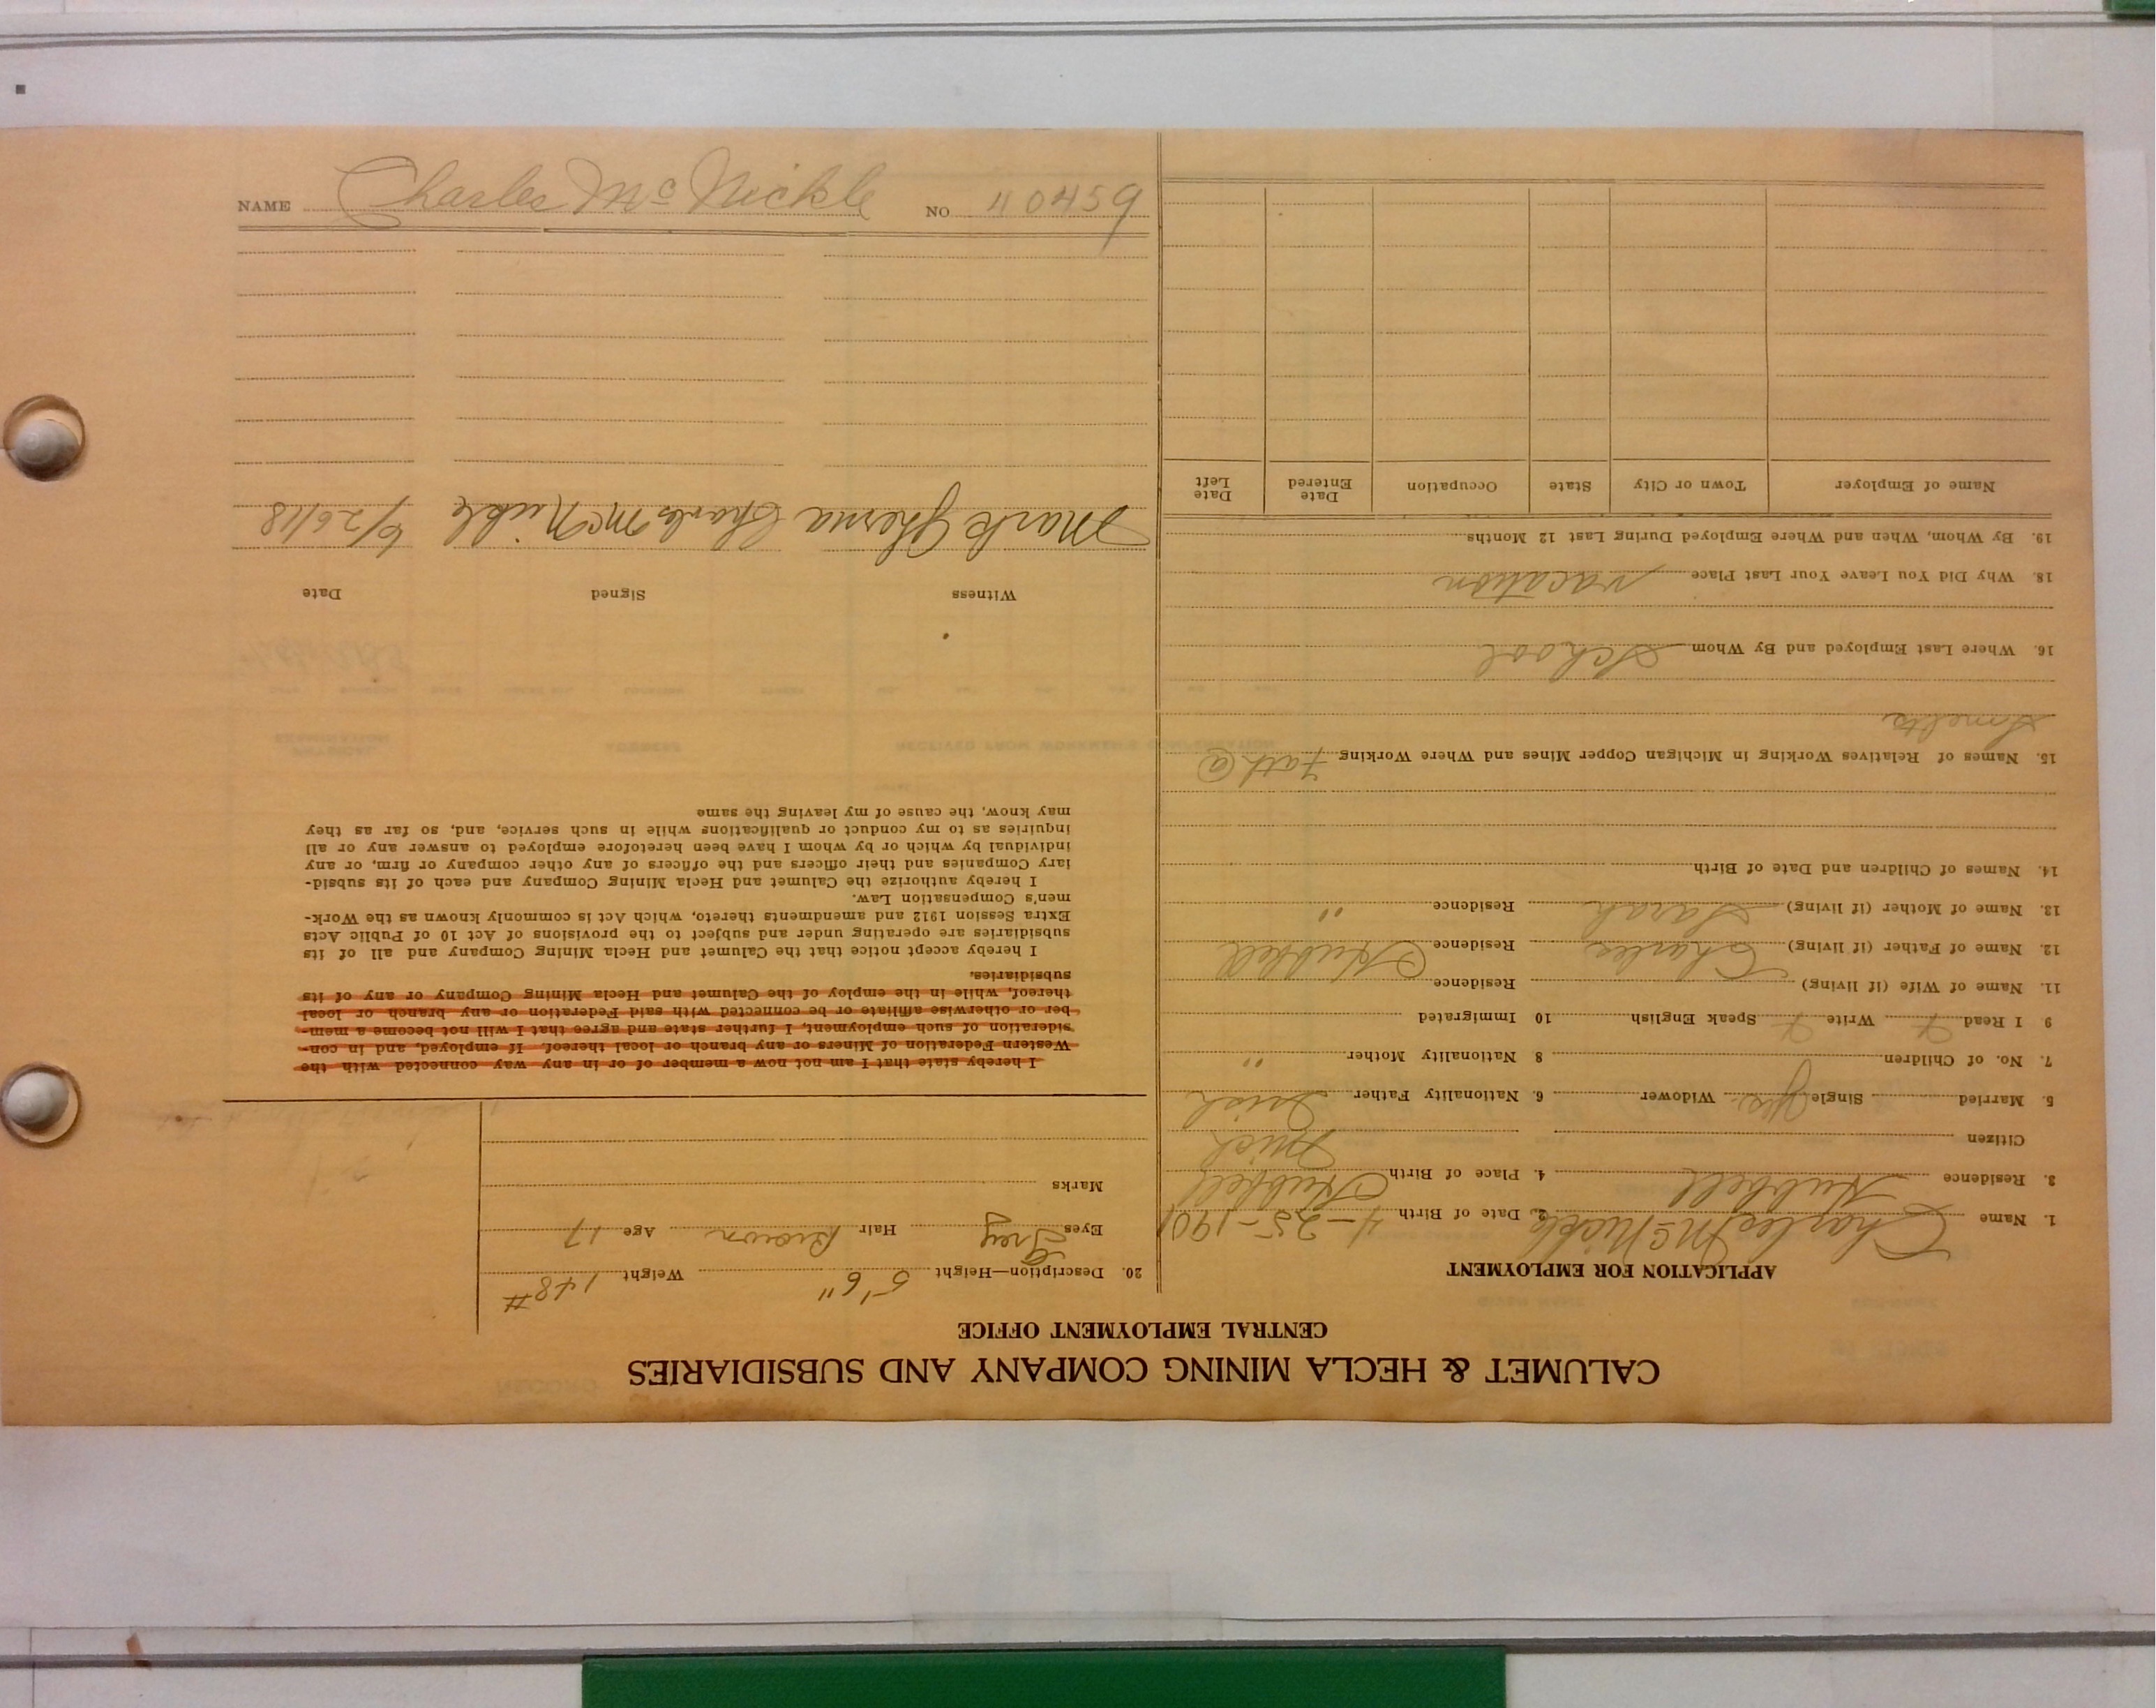 CALUMET & HECLA MINING COMPANY AND SUBSIDIARIES
CENTRAL EMPLOYMENT OFFICE
APPLICATION FOR EMPLOYMENT
1. Name Charles McNickle 2. Date of Birth 4-25-1901
3. Residence Hubbell 4. Place of Birth Hubbell
Mich
Citizen
5. Married Single yes. Widower 6. Nationality Father Irish
7. No. of Children 8 Nationality Mother "
9 I Read Write Speak English 10 Immigrated
11. Name of Wife (if living) Residence
12. Name of Father (if living) Charles Residence Hubbell
13. Name of Mother (if living) Sarah Residence "
14. Names of Children and Date of Birth
15. Names of Relatives Working in Michigan Copper Mines and Where Working Fath @
Smelts
16. Where Last Employed and By Whom School
18. Why Did You Leave Your Last Place vacation
19. By Whom, When and Where Employed During Last 12 Months
Name of Employer Town or City State Occupation Date Entered Date Left
20. Description—Height 5'6" Weight 148#
Eyes Grey Hair Brown Age 17
Marks
I hereby state that I am not now a member of or in any way connected with the
Western Federation of Miners or any branch or local thereof. If employed, and in con-
sideration of such employment, I further state and agree that I will not become a mem-
ber or otherwise affiliate or be connected with said Federation or any branch or local
thereof, while in the employ of the Calumet and Hecla Mining Company or any of its
subsidiaries.
I hereby accept notice that the Calumet and Hecla Mining Company and all of its
subsidiaries are operating under and subject to the provisions of Act 10 of Public Acts
Extra Session 1912 and amendments thereto, which Act is commonly known as the Work-
men's Compensation Law.
I hereby authorize the Calumet and Hecla Mining Company and each of its subsid-
iary Companies and their officers and the officers of any other company or firm, or any
individual by which or by whom I have been heretofore employed to answer any or all
inquiries as to my conduct or qualifications while in such service, and, so far as they
may know, the cause of my leaving the same
Witness Signed Date
Mark Charles McNickle 6/26/18
NAME Charles McNickle NO 40459